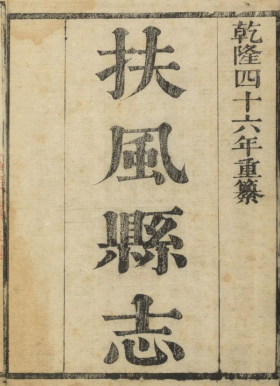 乾隆四十六年重纂
扶風縣志